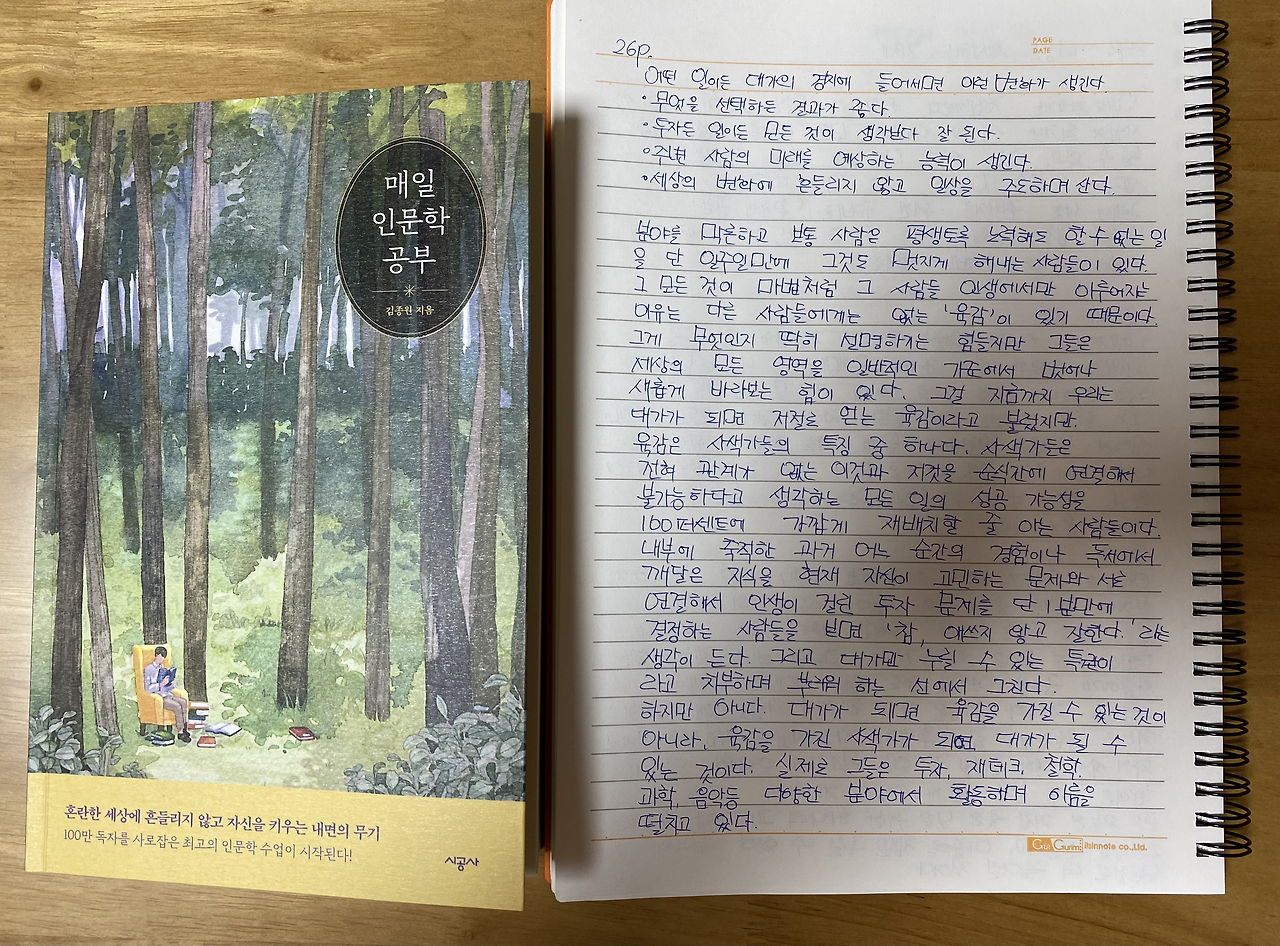 매일
인문학
공부
김종원 지음
혼란한 세상에 흔들리지 않고 자신을 키우는 내면의 무기
100만 독자를 사로잡은 최고의 인문학 수업이 시작된다!
시공사
PAGE
DATE
26p.
어떤 일이든 대가의 경지에 들어서면 이런 변화가 생긴다.
•무엇을 선택하든 결과가 좋다.
•투자든 일이든 모든 것이 생각보다 잘 된다.
•주변 사람의 미래를 예상하는 능력이 생긴다.
•세상의 변화에 흔들리지 않고 일상을 주도하며 산다.
분야를 막론하고 보통 사람은 평생토록 노력해도 할 수 없는 일
을 단 일주일만에 그것도 멋지게 해내는 사람들이 있다.
그 모든 것이 마법처럼 그 사람들 인생에서만 이루어지는
이유는 다른 사람들에게는 없는 '육감'이 있기 때문이다.
그게 무엇인지 딱히 설명하기는 힘들지만 그들은
세상의 모든 영역을 일반적인 기준에서 벗어나
새롭게 바라보는 힘이 있다. 그걸 지금까지 우리는
대가가 되면 저절로 얻는 육감이라고 불렀지만.
육감은 사색가들의 특징 중 하나다. 사색가들은
전혀 관계가 없는 이것과 저것을 순식간에 연결해서
불가능하다고 생각하는 모든 일의 성공 가능성을
100퍼센트에 가깝게 재배치할 줄 아는 사람들이다.
내부에 축적한 과거 어느 순간의 경험이나 독서에서
깨달은 지식을 현재 자신이 고민하는 문제와 서로
연결해서 인생이 걸린 투자 문제를 단 1분만에
결정하는 사람들을 보면 '참, 애쓰지 않고 잘한다.'라는
생각이 든다. 그리고 대가만 누릴 수 있는 특권이
라고 치부하며 부러워 하는 선에서 그친다.
하지만 아니다. 대가가 되면 육감을 가질 수 있는 것이
아니라, 육감을 가진 사색가가 되면 대가가 될 수
있는 것이다. 실제로 그들은 투자, 재테크, 철학,
과학, 음악등 다양한 분야에서 활동하며 이름을
떨치고 있다.
Gui Gurim ilsinnote co.,Ltd.